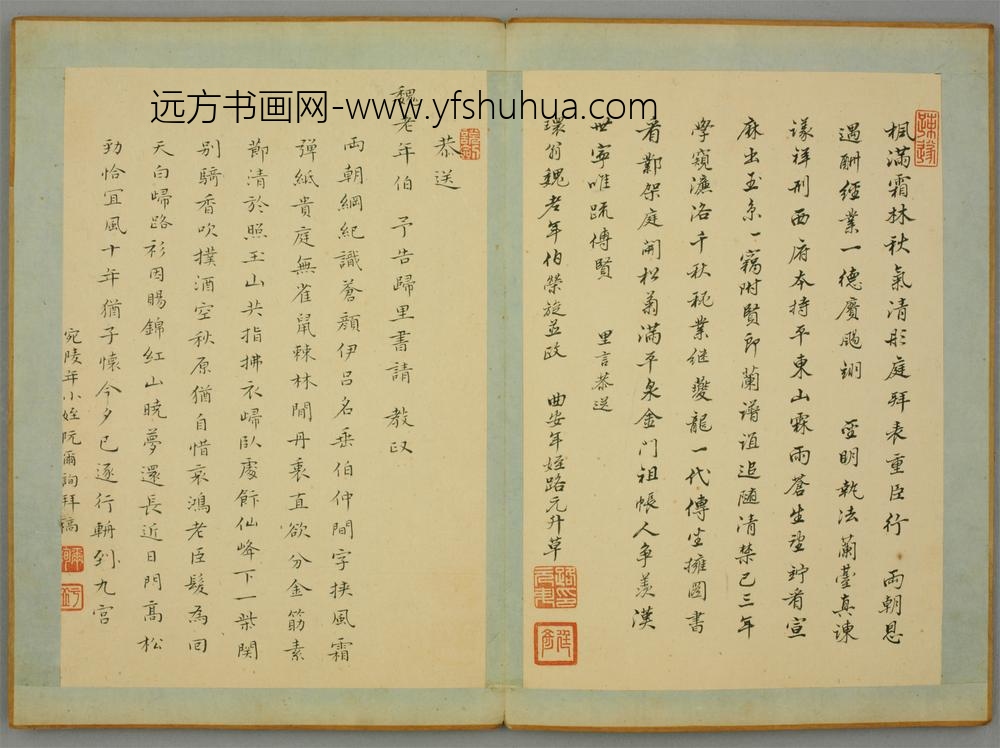 远方书画网-www.yfshuhua.com
楓滿霜林秋氣清彤庭拜表重臣行 兩朝恩
遇酬經業一德賡颺翊 聖明執法蘭臺真諫
議祥刑西府本持平東山霖雨蒼生望竚看宣
麻出玉京一竊附賢郎蘭譜誼追隨清禁已三年
學窺濂洛千秋秘業繼夔龍一代傳坐擁圖書
看鄴架庭開松菊滿平泉金門祖帳人爭羨漢
世寧唯疏傅賢 里言恭送
環翁魏老年伯榮旋並政 曲安年姪路元升草
恭送
魏老年伯 予告歸里書請 教政
兩朝綱紀識蒼顏伊呂名垂伯仲間字挾風霜
彈紙貴庭無雀鼠棘林閒丹裏直欲分金筋素
節清於照玉山共指拂衣歸臥處飭仙峰下一柴関
別騎香吹撲酒空秋原猶自惜哀鴻老臣髮為回
天白歸路衫因賜錦紅山曉夢還長近日門高松
勁恰宜風十年猶子懷今夕已逐行輈到九宮
宛陵年小姪阮爾詢拜稿